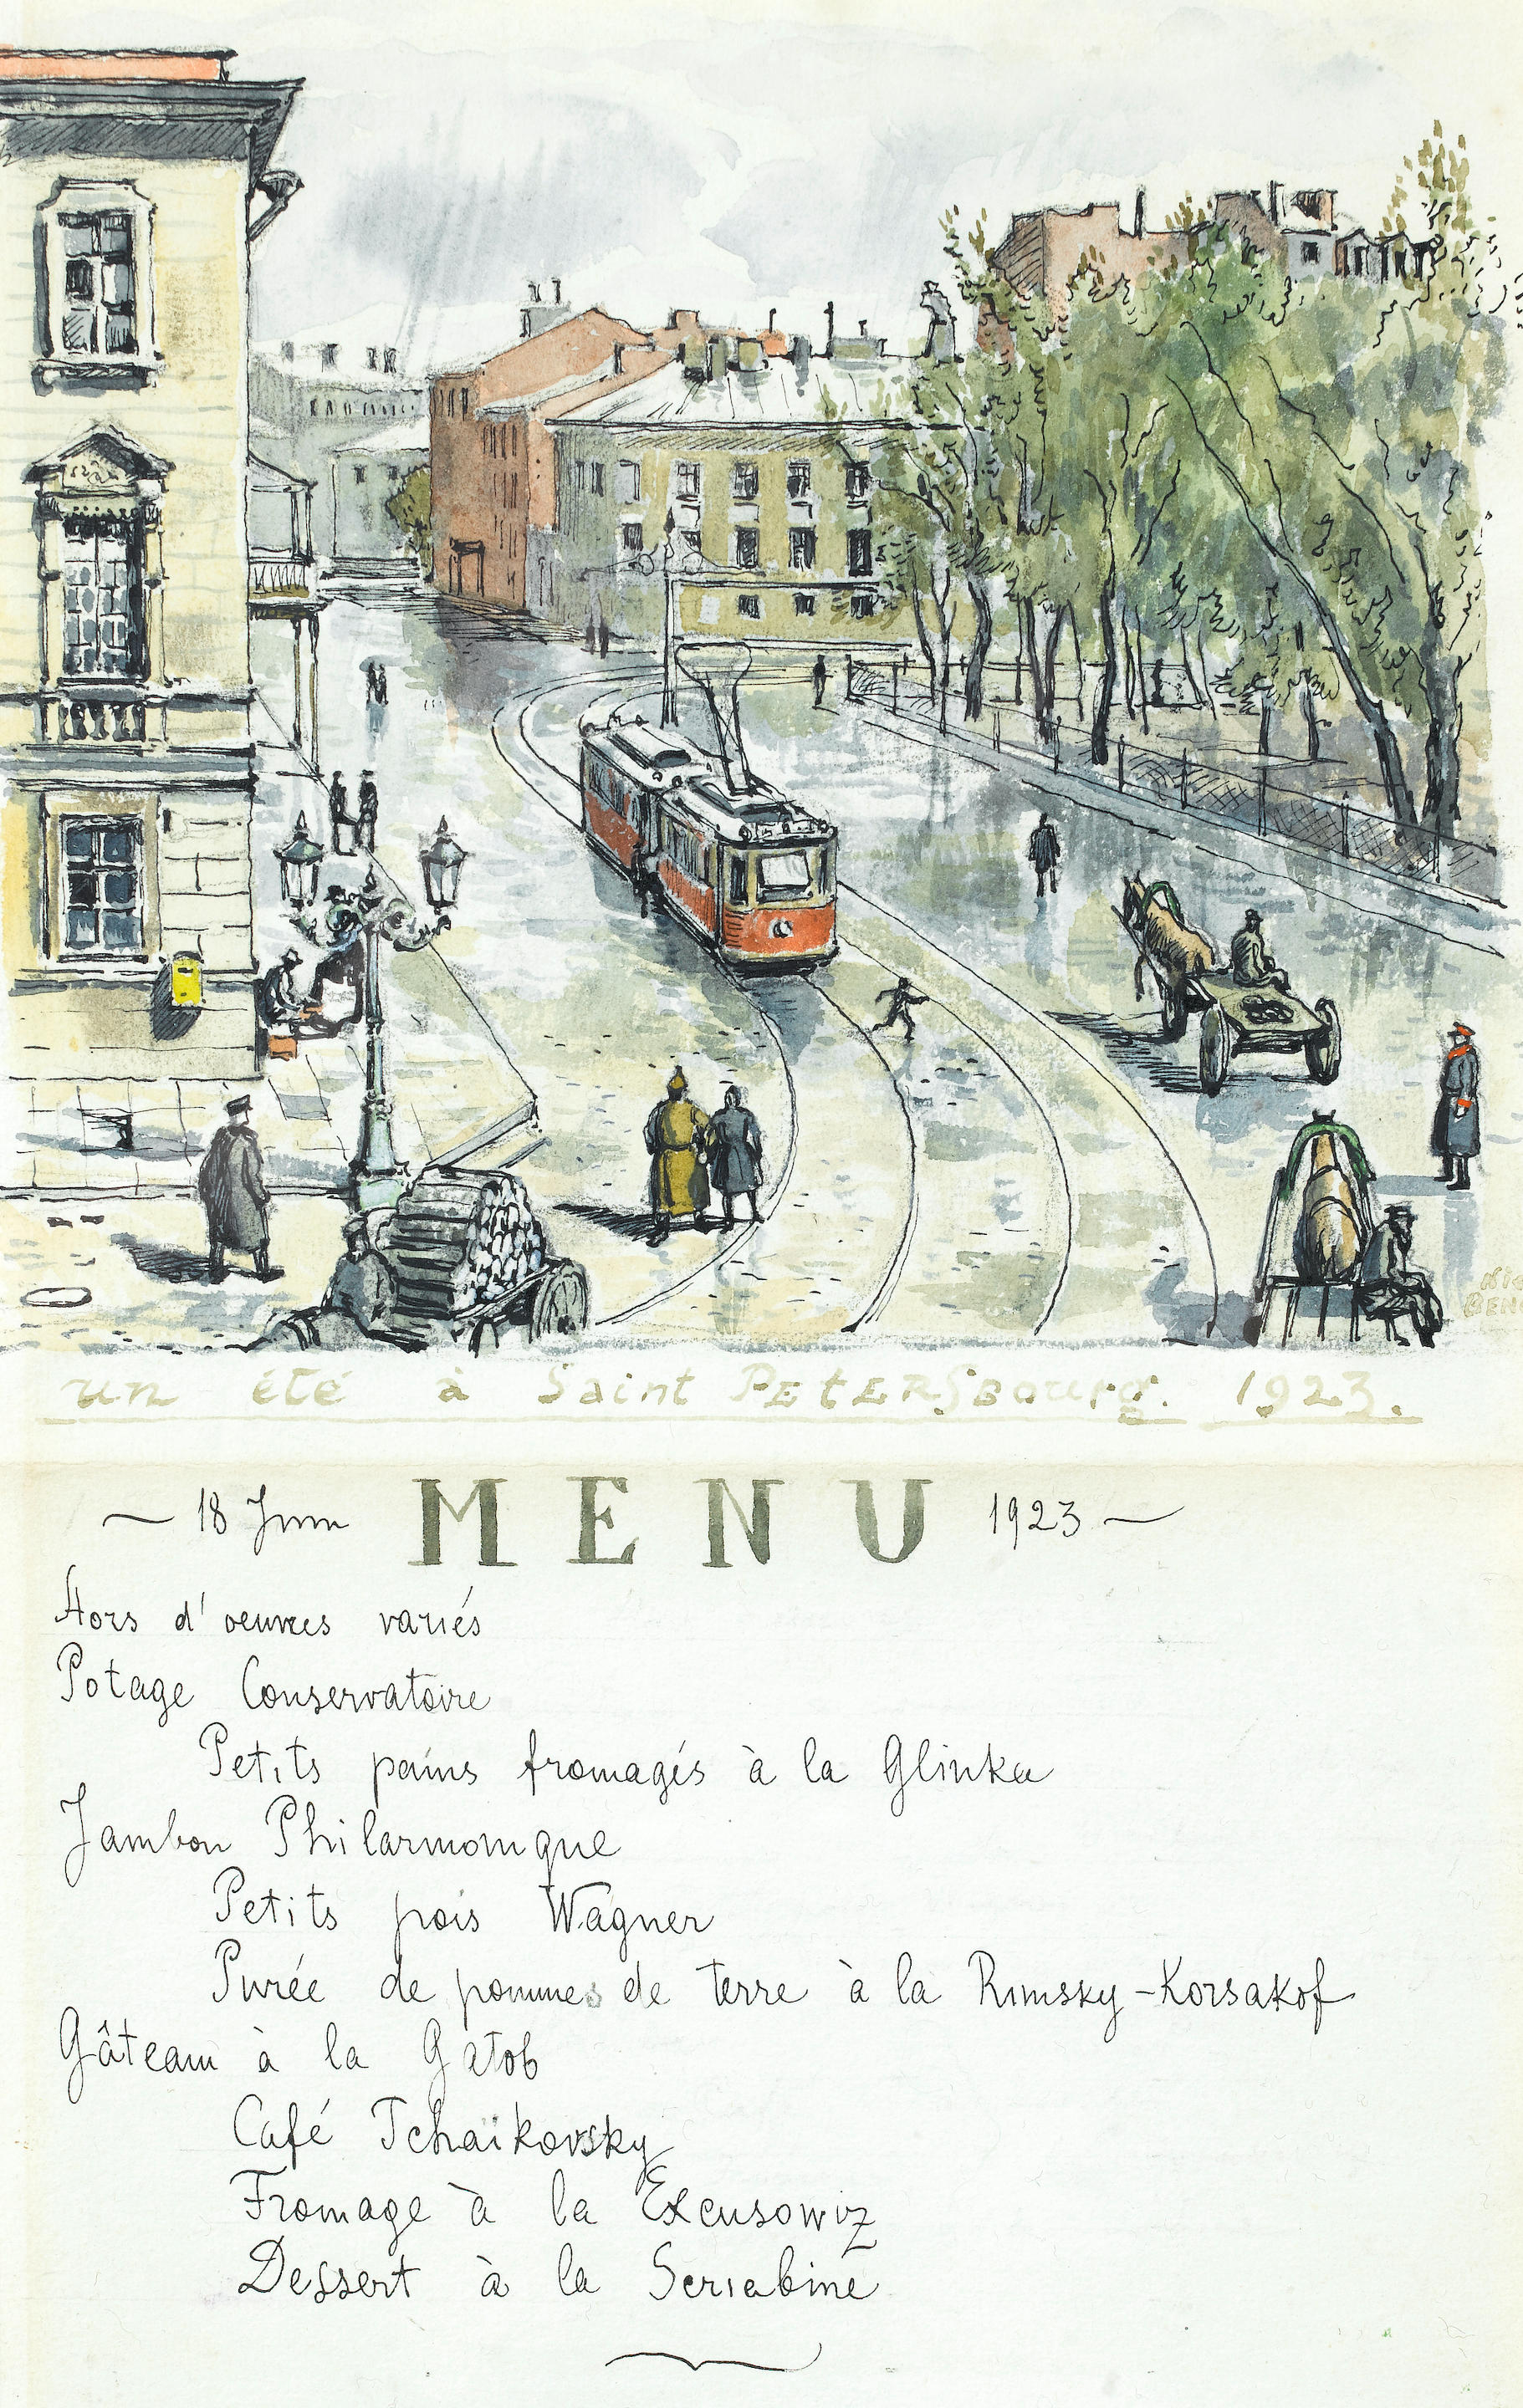 un été à Saint PETERSBourg. 1923.
~ 18 Juin MENU 1923 ~
Hors d'oeuvres variés
Potage Conservatoire
Petits pains fromagés à la Glinka
Jambon Philarmonique
Petits pois Wagner
Purée de pommes de terre à la Rimsky-Korsakof
Gâteau à la Gatob
Café Tchaïkovsky
Fromage à la Excusowiz
Dessert à la Scriabine